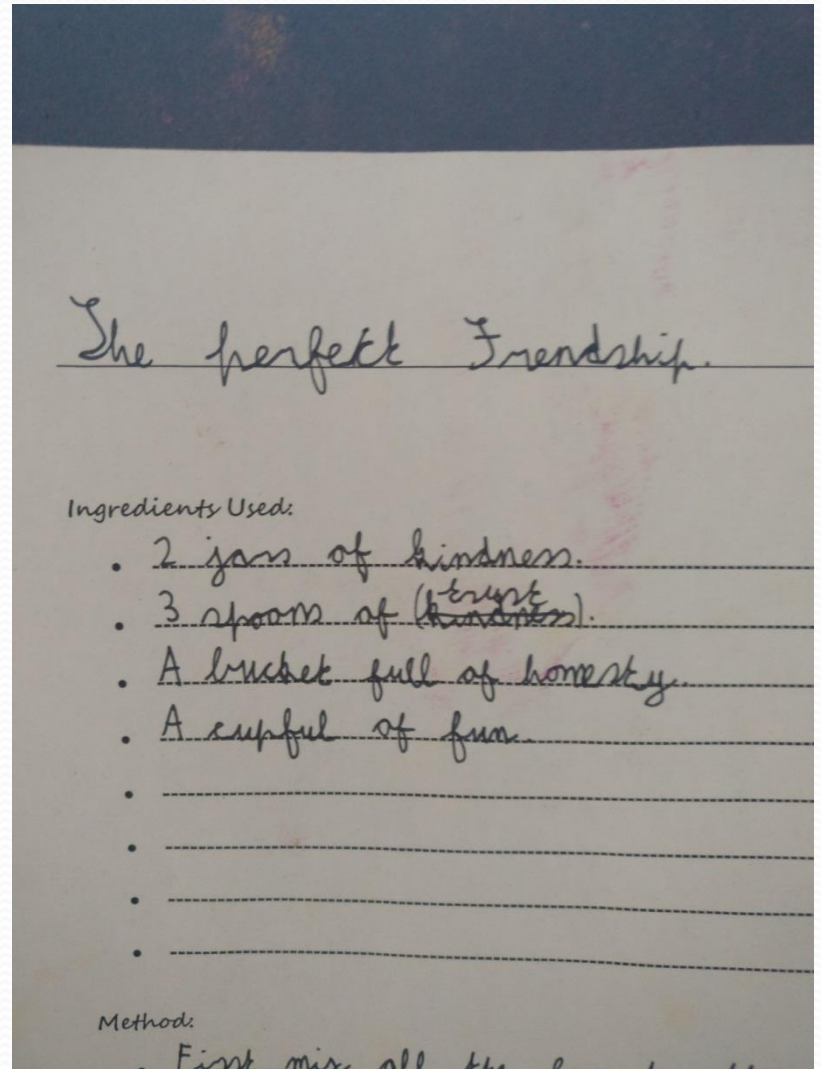 The perfekt Frendship.
Ingredients Used:
• 2 jars of kindness.
• 3 spoons of (trust).
• A bucket full of honesty.
• A cupful of fun.
Method:
First mix all the